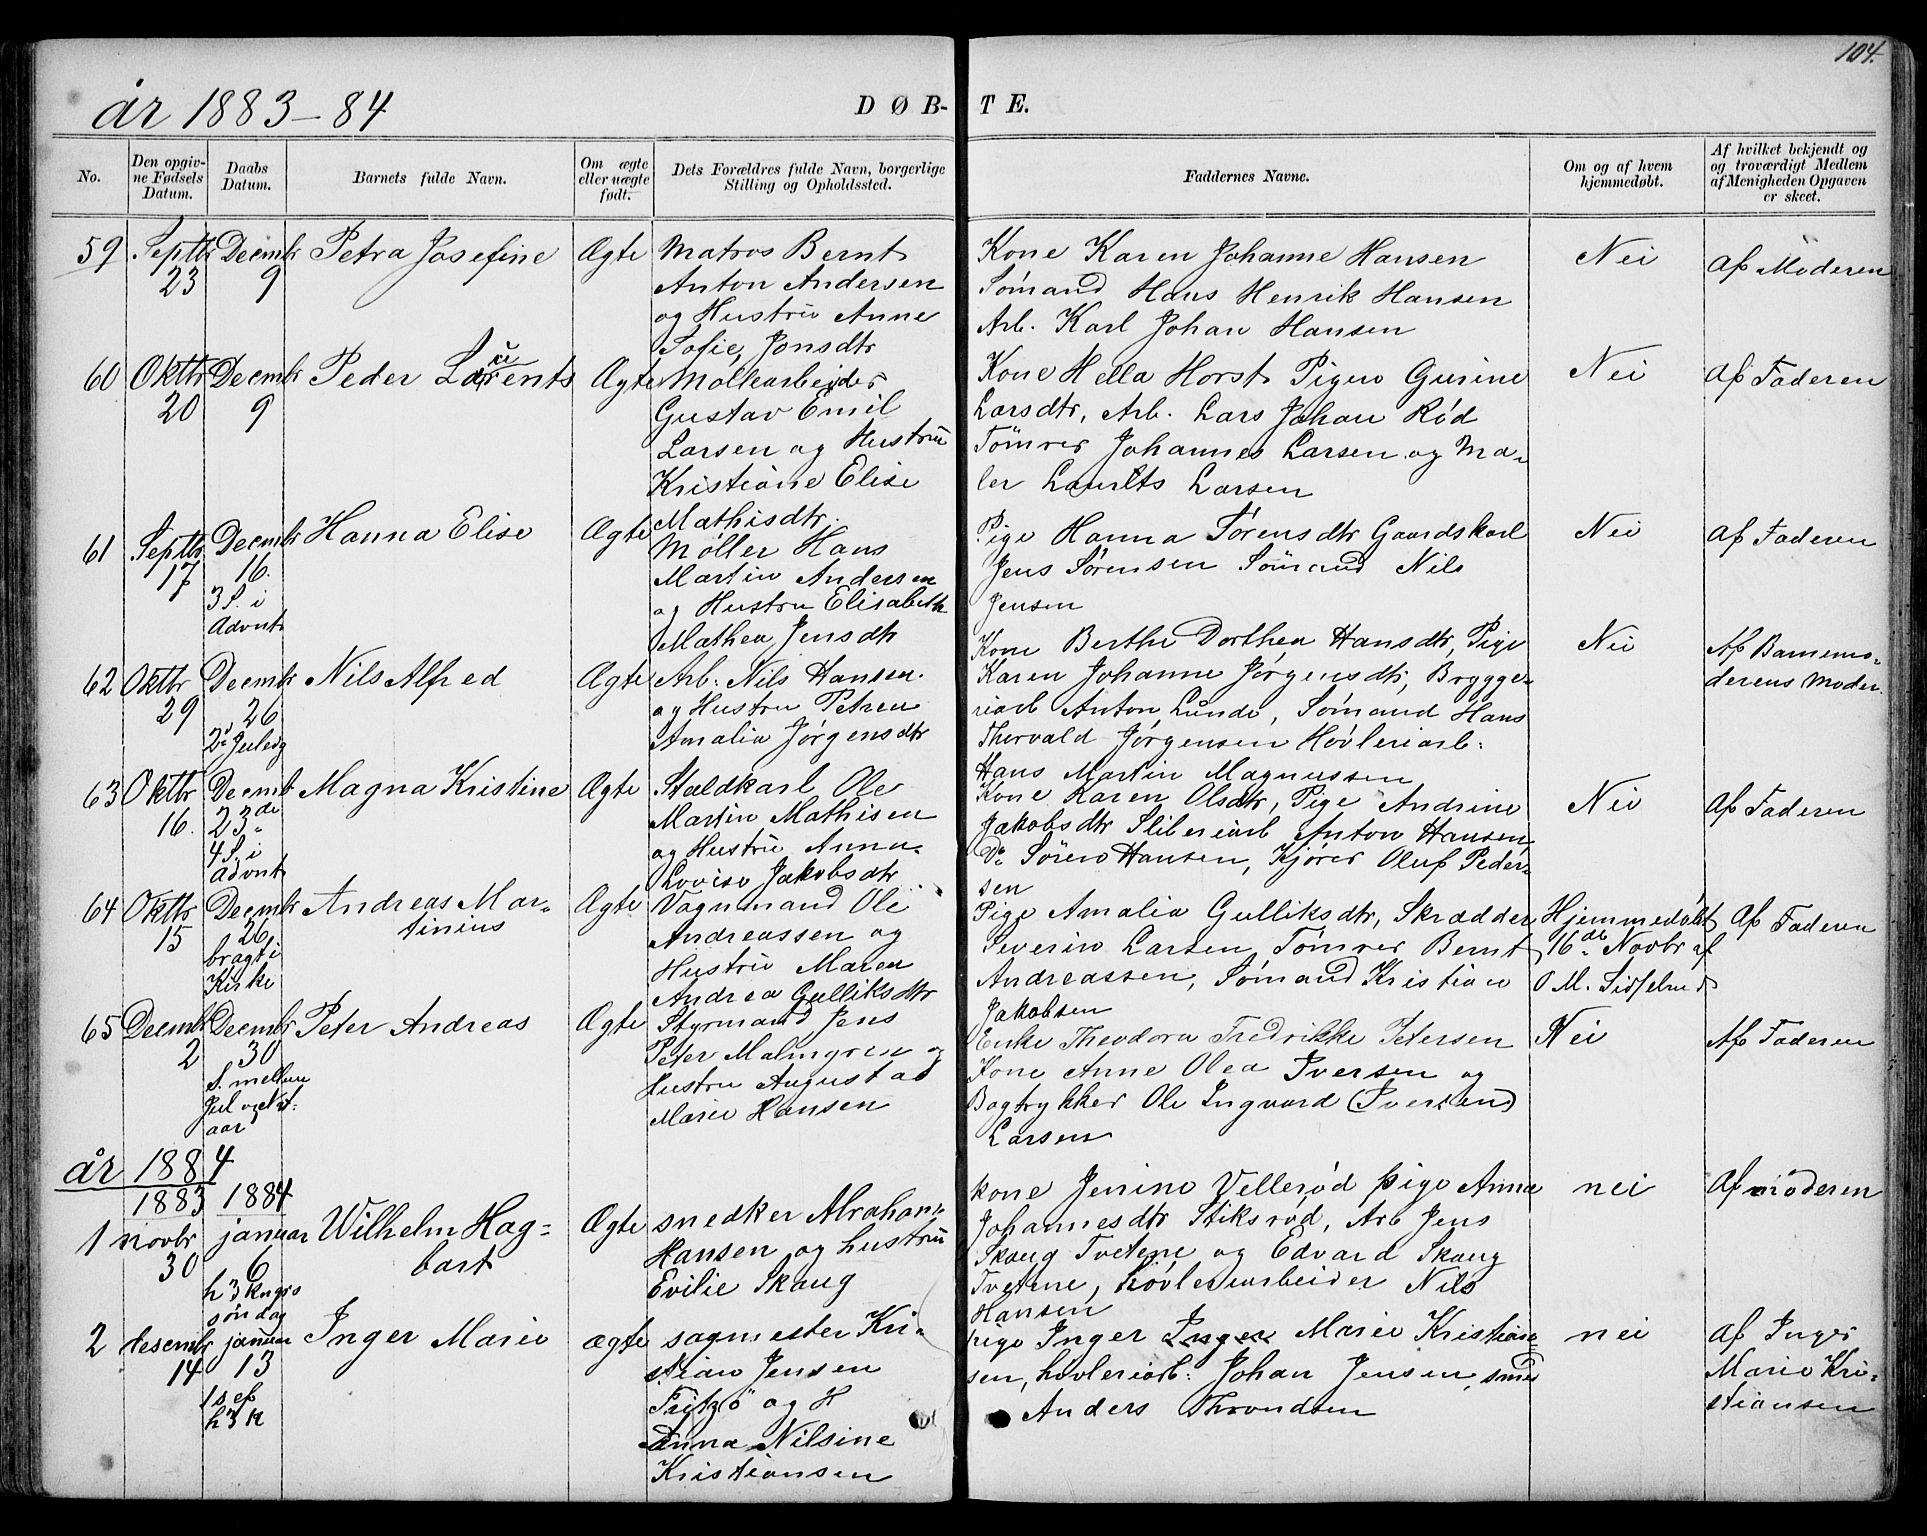 104.
år 1883-84
DØB-
TE.
No.
Den opgiv-
ne Fødsels
Datum.
Daabs
Datum.
Barnets fulde Navn.
Om ægte
eller uægte
født.
Dets Forældres fulde Navn, borgerlige
Stilling og Opholdssted.
Faddernes Navne.
Om og af hvem
hjemmedøbt.
Af hvilket bekjendt og
og troværdigt Medlem
af Menigheden Opgaven
er skeet.
59
Septbr
23
Decmbr
9
Petra Josefine
Ægte
Matros Bernt
Anton Andersen
og Hustru Anne
Sofie Jonsdtr
Kone Karen Johanne Hansen
Sømand Hans Henrik Hansen
Arb. Karl Johan Hansen
Nei
Af Moderen
60
Oktbr
20
Decmbr
9
Peder Laurents
Ægte
Møllearbeider
Gustav Emil
Larsen og Hustru
Kristiane Elise
Mathisdtr.
Kone Hella Horst Pigen Gurine
Larsdtr, Arb. Lars Johan Rød
Tømrer Johannes Larsen og Ma-
ler Laurits Larsen
Nei
Af Faderen
61
Septbr
17
Decmbr
16.
3 S. i
Advent
Hanna Elise
Ægte
Møller Hans
Martin Andersen
og Hustru Elisabeth
Mathea Jensdtr
Pige Hanna Sørensdtr Gaardskarl
Jens Sørensen Sømand Nils
Jensen
Nei
Af Faderen
62
Oktbr
29
Decmbr
26
2. Juledg
Nils Alfred
Ægte
Arb. Nils Hansen
og Hustru Petrea
Amalia Jørgensdtr
Kone Berthe Dorthea Hansdtr, Pige
Karen Johanne Jørgensdtr, Brygge-
riarb Anton Lunde, Sømand Hans
Thorvald Jørgensen Høvleriarb:
Hans Martin Magnussen
Nei
Af Barnemo-
derens Moder.
63
Oktbr
16.
Decmb
23de
4 S. i
Advnt
Magna Kristine
Ægte
Staldkarl Ole
Martin Mathisen
og Hustru Anna
Lovise Jakobsdtr
Kone Karen Olsdtr, Pige Andrine
Jakobsdtr Sliberiarb Anton Hansen,
Do Søren Hansen, Kjører Oluf Peder-
sen
Nei
Af Faderen
64
Oktbr
15
Decmbr
26
bragt i
Kirke
Andreas Mar-
tinius
Ægte
Vognmand Ole
Andreassen og
Hustru Maren
Andrea Gulliksdtr
Pige Amalia Gulliksdtr, Skrædder
Severin Larsen, Tømrer Bernt
Andreassen, Sømand Kristian
Jakobsen
Hjemmedøbt
16de Novbr af
O M.
Af Faderen
65
Decmbr
2
Decmbr
30
S. mellem
Jul og Nyt-
aar
Peter Andreas
Ægte
Styrmand Jens
Peter Malmgren og
Hustru Augusta
Marie Hansen
Enke Theodora Fredrikke Petersen
Kone Anne Olea Iversen og
Bogtrykker Ole Ingvard (Iversen)
Larsen
Nei
Af Faderen
år 1884
1883
1884
1
novbr
30
januar
6
h 3 kngrs
søndag
Wilhelm Hag-
bart
Ægte
snedker Abraham
Hansen og hustru
Evilie Skaug
kone Jenine Vellerød pige Anna
Johannesdtr Stiksrød, Arb Jens
Skaug Tvetene og Edvard Skaug
Tvetene, høvleriarbeider Nils
Hansen
nei
Af moderen
2
desembr
14
januar
13
1 s ef
h 3 k
Inger Marie
ægte
sagmester Kri-
stian Jensen
Fritzö og H
Anna Nilsine
Kristiansen
pige Inger Inger Marie Kristian-
sen, høvleriarb: Johan Jensen, smed
Anders Throndsen
nei
Af Inger
Marie Kri-
stiansen